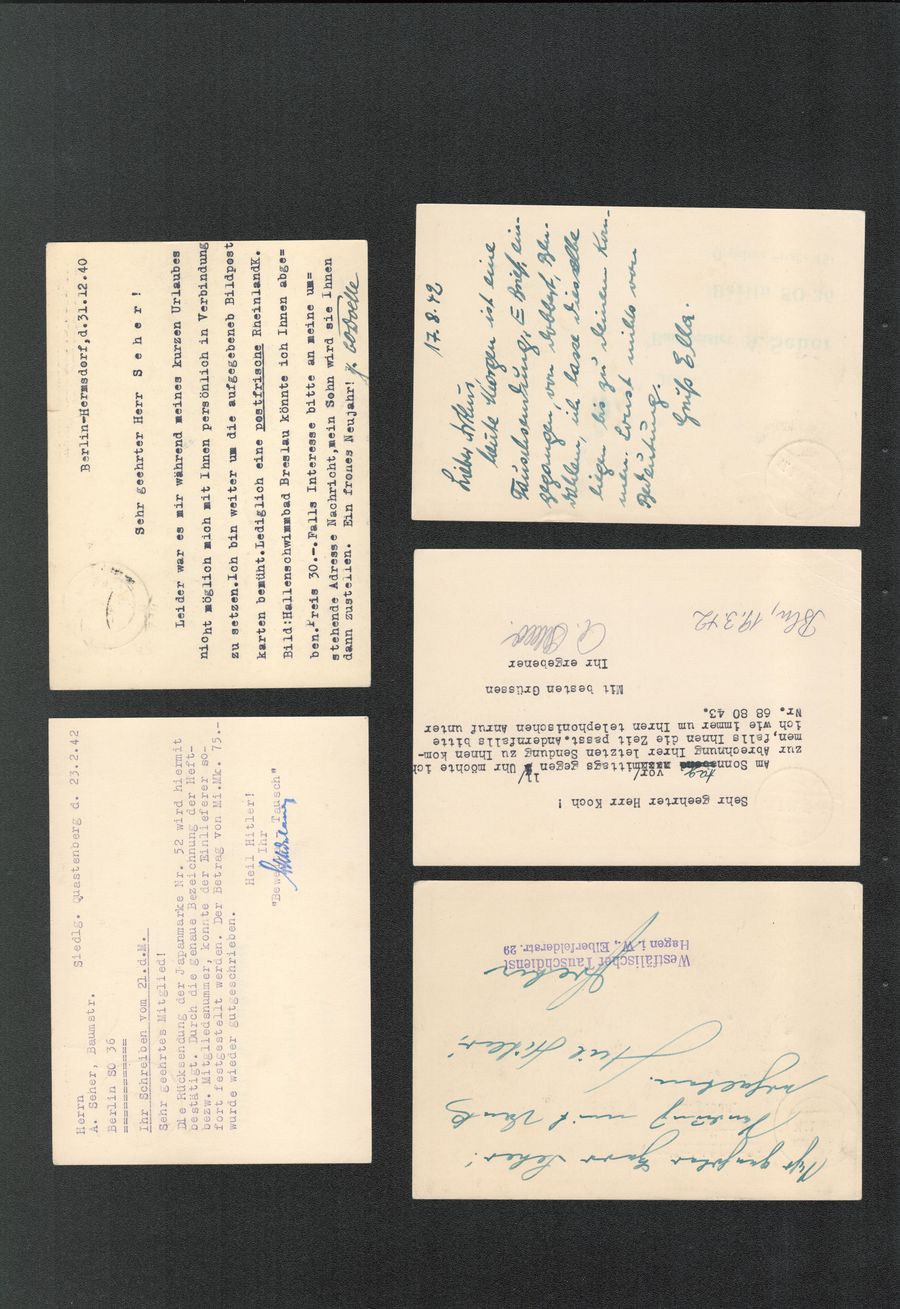 Berlin-Hermsdorf,d.31.12.40
Sehr geehrter Herr S e h e r !
Leider war es mir während meines kurzen Urlaubes
nicht möglich mich mit Ihnen persönlich in Verbindung
zu setzen.Ich bin weiter um die aufgegebeneb Bildpost
karten bemüht.Lediglich eine postfrische RheinlandK.
Bild:Hallenschwimmbad Breslau könnte ich Ihnen abge=
ben.Preis 30.-.Falls Interesse bitte an meine um=
stehende Adresse Nachricht,mein Sohn wird sie Ihnen
dann zustellen. Ein frohes Neujahr!
Siedlg. Quastenberg d. 23.2.42
Herrn
A. Seher, Baumstr.
Berlin SO 36
===========
Ihr Schreiben vom 21.d.M.
Sehr geehrtes Mitglied!
Die Rücksendung der Japanmarke Nr. 52 wird hiermit
bestätigt. Durch die genaue Bezeichnung der Heft-
bezw. Mitgliedsnummer, konnte der Einlieferer so-
fort festgestellt werden. Der Betrag von Mi.Mk. 75.-
wurde wieder gutgeschrieben.
Heil Hitler!
Ihr
Tausch"
17.8.42
Lieber Artur
heute Morgen ist eine
Tauschsendung, E Brief ein-
gegangen von
ich lasse dieselbe
liegen bis zu deinem Kom-
men. Sonst nichts von
Bedeutung.
Gruß Ella.
Sehr geehrter Herr Koch !
tag vor/ 11/
Am Sonn mittags gegen Uhr möhte ich
zur Abrechnung Ihrer letzten Sendung zu Ihnen kom-
men, falls Ihnen die Zeit passt. Andernfalls bitte
ich wie immer um Ihren telephonischen Anruf unter
Nr. 68 80 43.
Mit besten Grüssen
Ihr ergebener
Bln, 19.3.42
Sehr geehrter Herr Seher!
Sendung mit Dank
erhalten.
Heil Hitler!
Westfälischer Tauschdienst
Hagen i. W., Elberfelderstr. 29